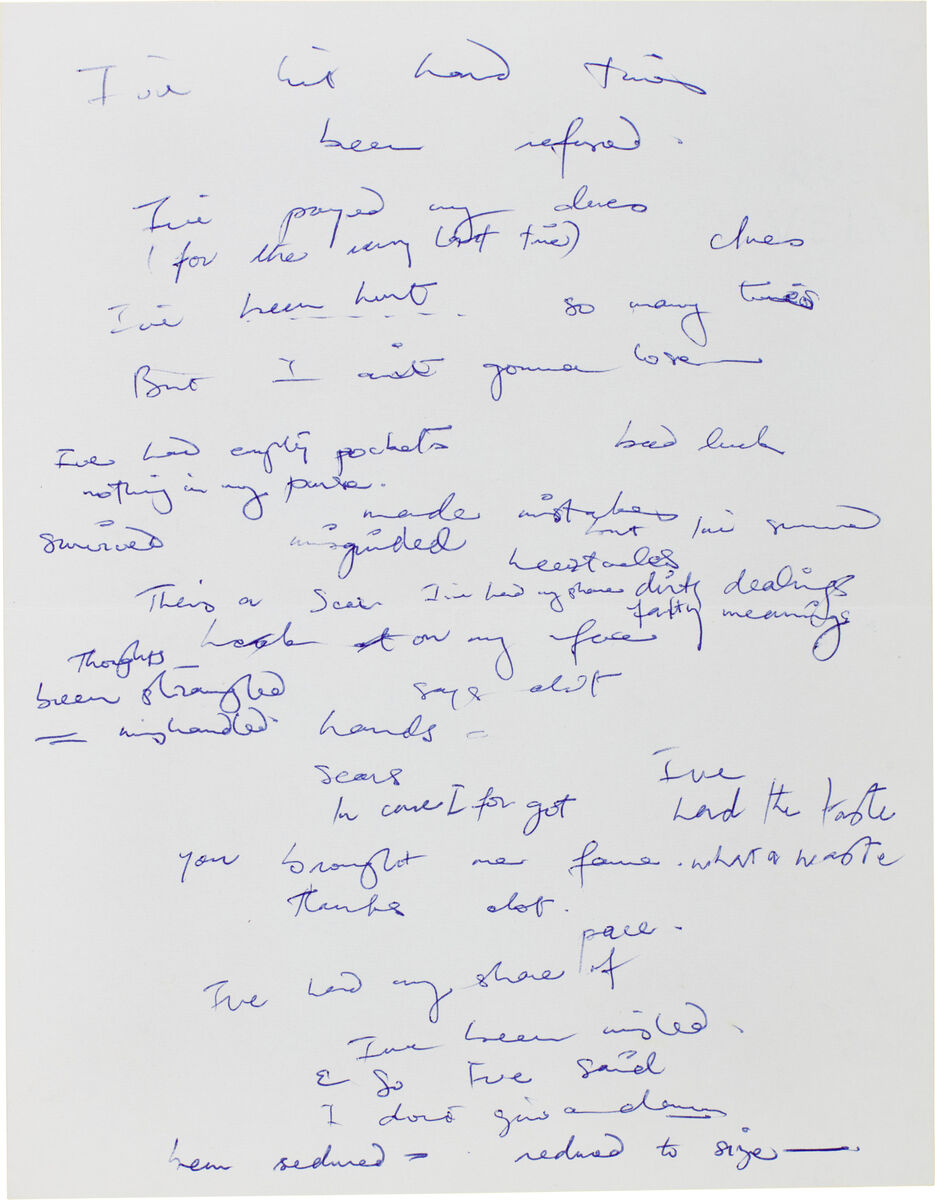 I've hit hard times
been refused.
I've payed my dues
(for the very last time) clues
I've been hurt so many times
But I ain't gonna lose
I've had empty pockets bad luck
nothing in my purse.
made mistakes but I've survived
survived misguided
Theirs a scar I've had my share dirty dealings
Thoughts on my face
been strangled says alot
= mishandled hands =
scars I've
In case I forgot had the taste
you brought me fame. what a waste
thanks alot.
pace.
I've had my share of
I've been misled.
& So I've said
I don't give a damn
been seduced = reduced to size —